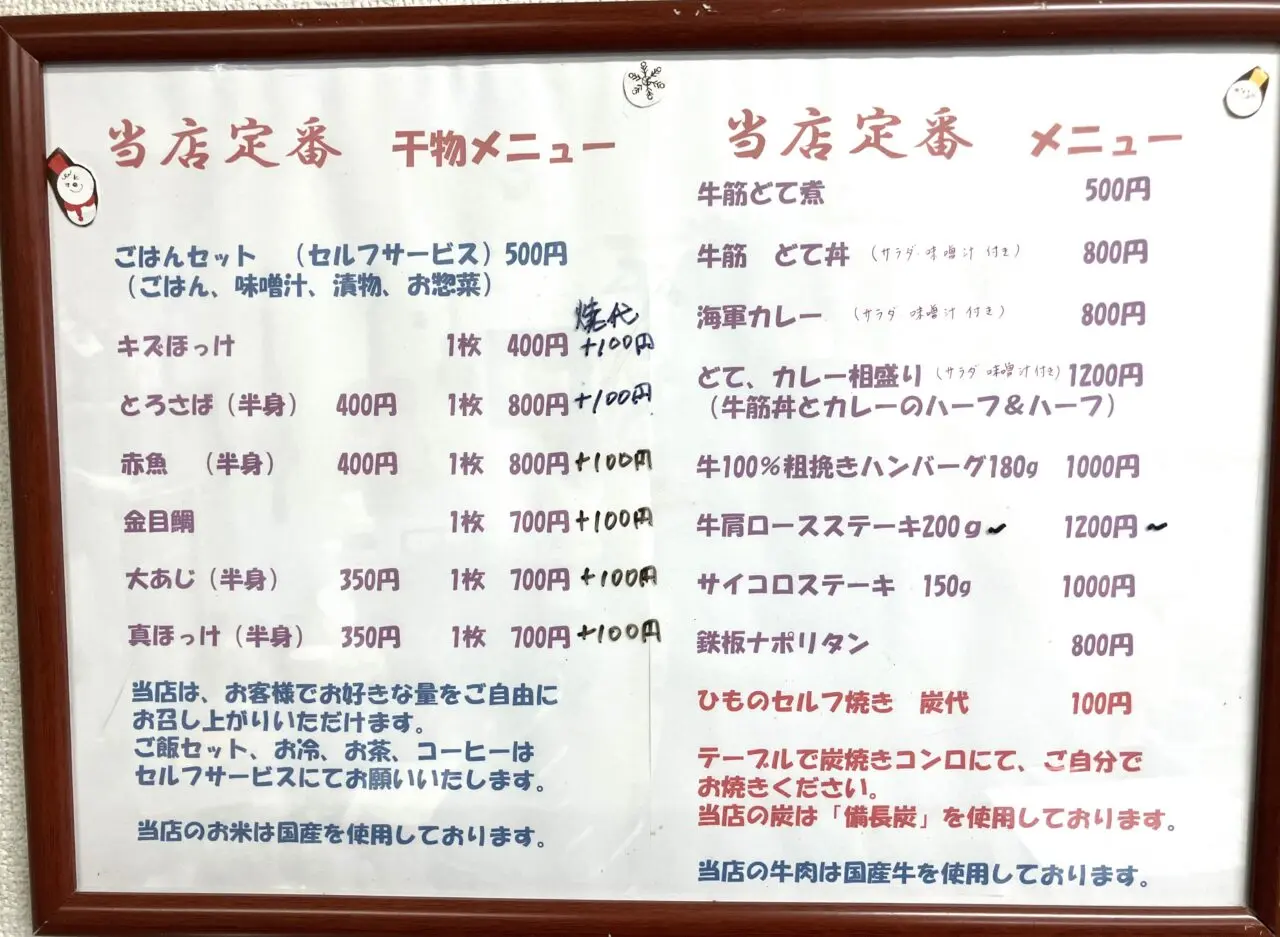 当店定番 干物メニュー
ごはんセット （セルフサービス）500円
（ごはん、味噌汁、漬物、お惣菜）
焼代
キズほっけ 1枚 400円 +100円
とろさば（半身） 400円 1枚 800円 +100円
赤魚 （半身） 400円 1枚 800円 +100円
金目鯛 1枚 700円 +100円
大あじ（半身） 350円 1枚 700円 +100円
真ほっけ（半身） 350円 1枚 700円 +100円
当店は、お客様でお好きな量をご自由に
お召し上がりいただけます。
ご飯セット、お冷、お茶、コーヒーは
セルフサービスにてお願いいたします。
当店のお米は国産を使用しております。
当店定番 メニュー
牛筋どて煮 500円
牛筋 どて丼 （サラダ・味噌汁 付き） 800円
海軍カレー （サラダ 味噌汁 付き） 800円
どて、カレー相盛り（サラダ 味噌汁 付き）1200円
（牛筋丼とカレーのハーフ＆ハーフ）
牛100％粗挽きハンバーグ180g 1000円
牛肩ロースステーキ200ｇ〜 1200円〜
サイコロステーキ 150g 1000円
鉄板ナポリタン 800円
ひものセルフ焼き 炭代 100円
テーブルで炭焼きコンロにて、ご自分で
お焼きください。
当店の炭は「備長炭」を使用しております。
当店の牛肉は国産牛を使用しております。